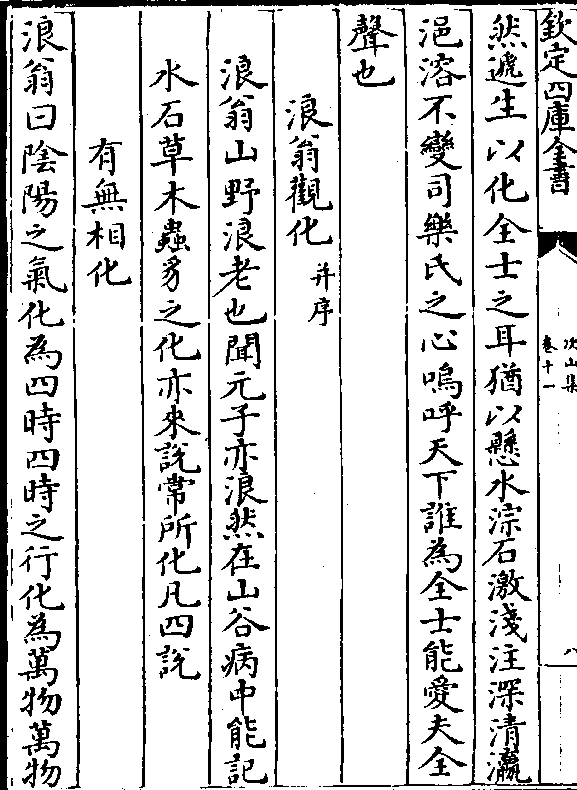 欽定四庫全書
次山集
卷十一
八
然遞生以化全士之耳猶以懸水淙石激淺注深清瀛
浥溶不變司樂氏之心嗚呼天下誰為全士能愛夫全
聲也
浪翁觀化并序
浪翁山野浪老也聞元子亦浪然在山谷病中能記
水石草木蟲豸之化亦來說常所化凡四說
有無相化
浪翁曰陰陽之氣化為四時四時之行化為萬物萬物